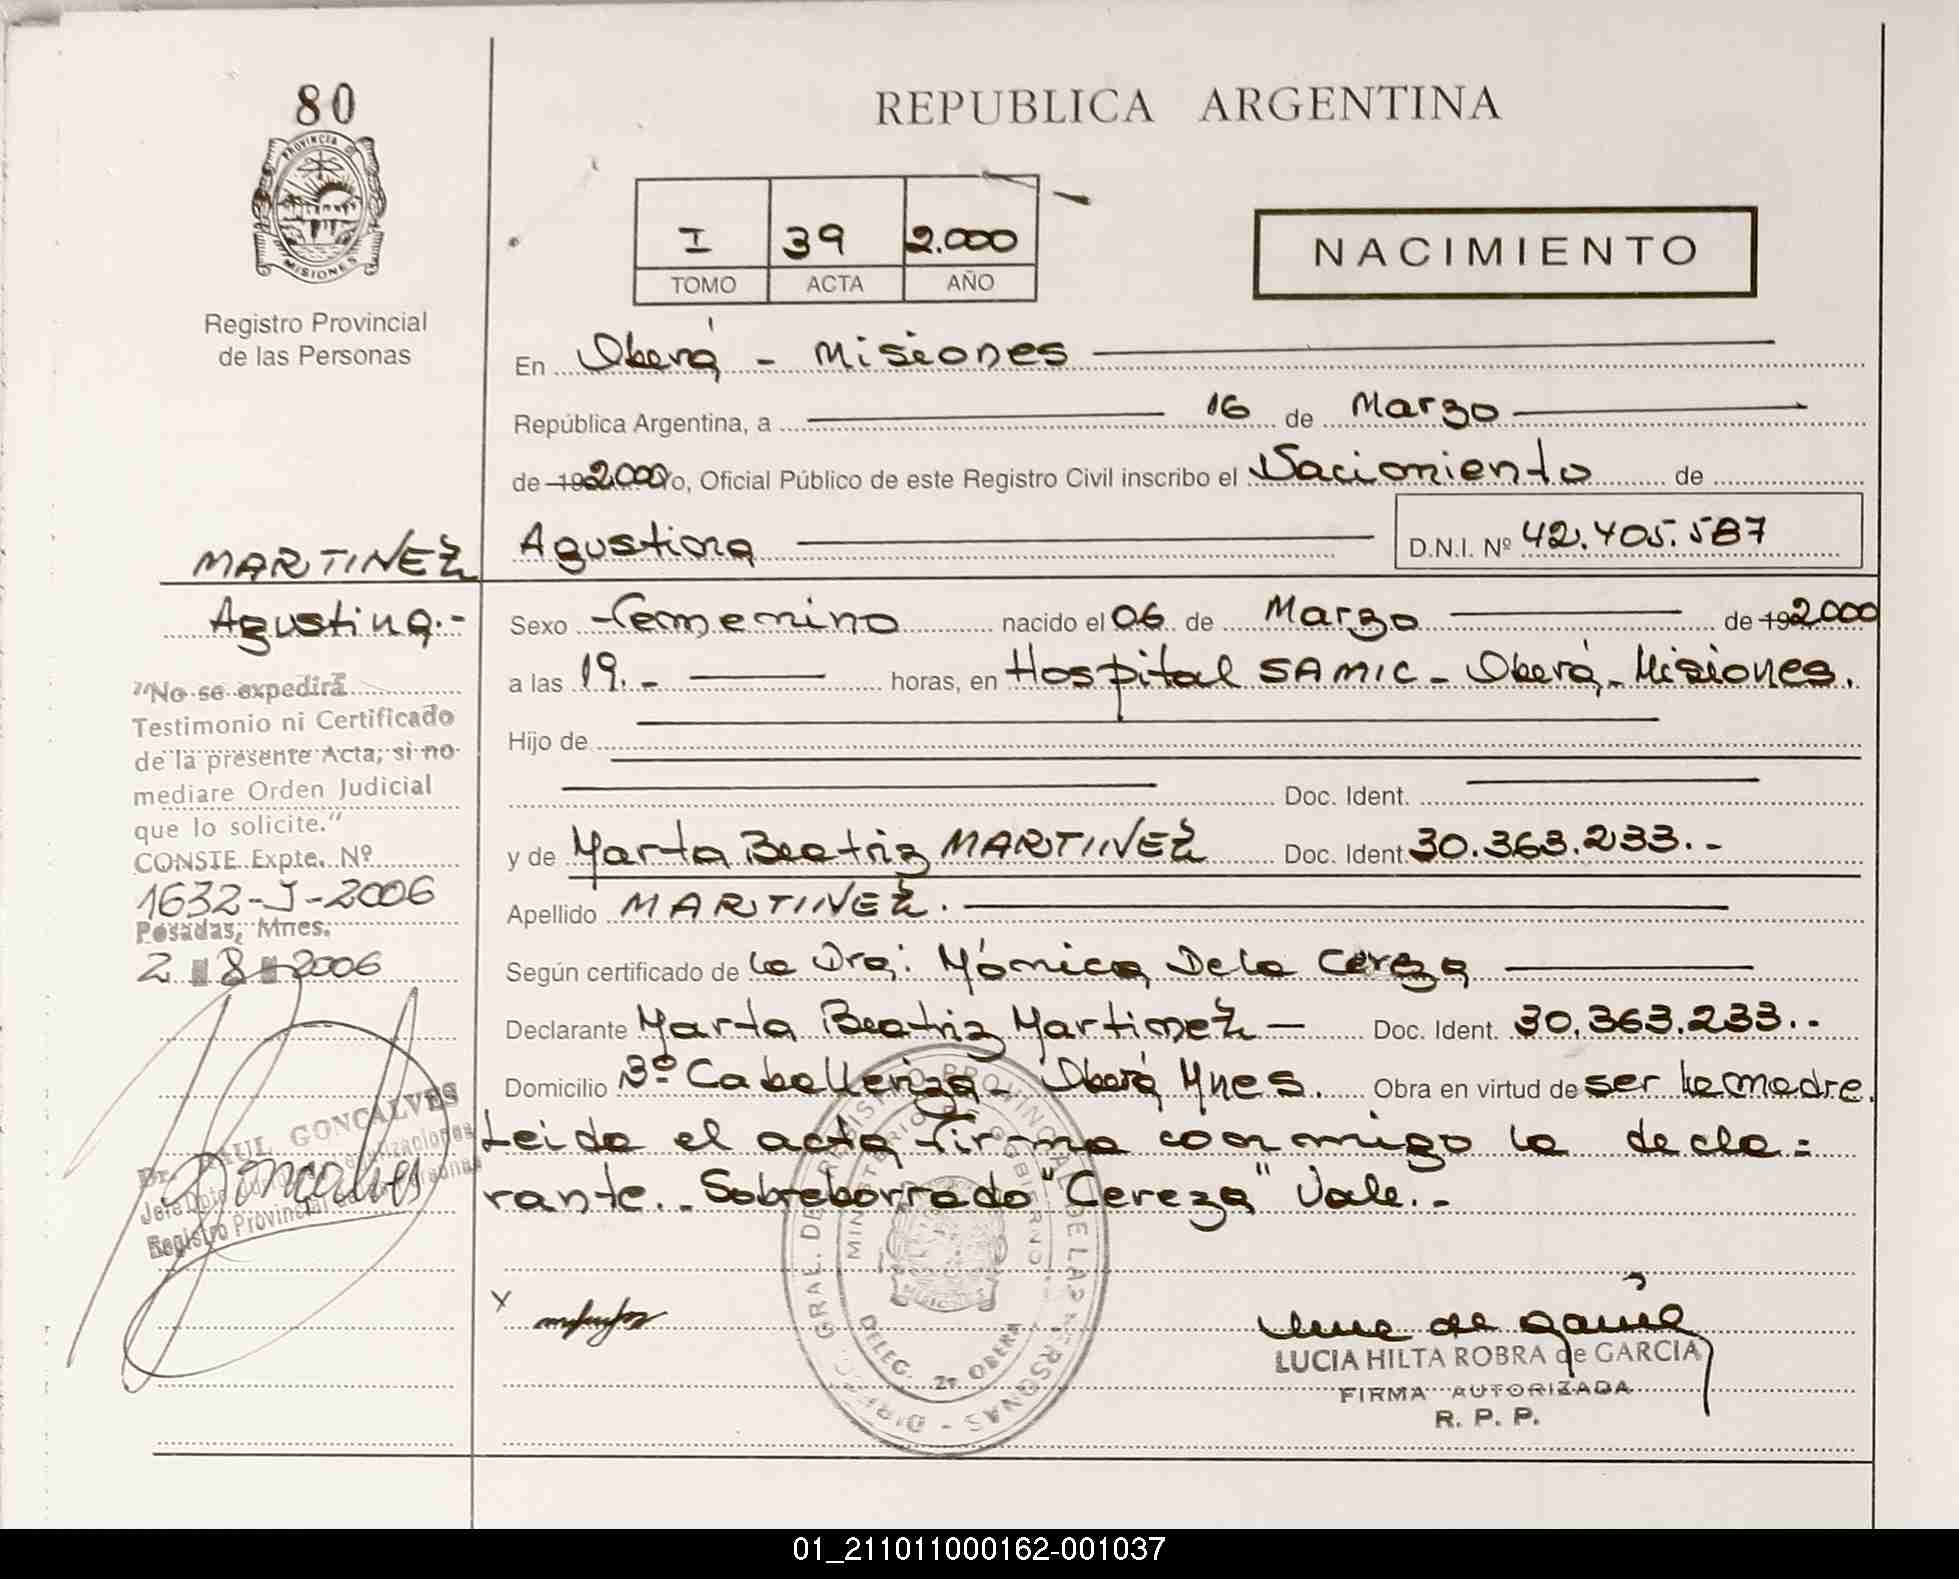 80
PROVINCIA DE
MISIONES
Registro Provincial
de las Personas
REPUBLICA ARGENTINA
I 39 2.000
TOMO ACTA AÑO
NACIMIENTO
En Oberá - Misiones
República Argentina, a 16 de Marzo
de 19 2.000 yo, Oficial Público de este Registro Civil inscribo el Nacimiento de
Agustina D.N.I. Nº 42.405.587
MARTINEZ
Agustina.-
"No se expedirá
Testimonio ni Certificado
de la presente Acta, si no
mediare Orden Judicial
que lo solicite."
CONSTE Expte. Nº
1632-J-2006
Posadas, Mnes.
2 8 2006
Dr. RAUL GONCALVES
Jefe Dpto.
Registro Provincial de las Personas
Sexo Femenino nacido el 06 de Marzo de 19 2.000
a las 19.- horas, en Hospital SAMIC - Oberá - Misiones.
Hijo de
Doc. Ident.
y de Marta Beatriz MARTINEZ Doc. Ident. 30.363.233.-
Apellido MARTINEZ.
Según certificado de la Dra: Mónica De la Cereza
Declarante Marta Beatriz Martinez - Doc. Ident. 30.363.233.-
Domicilio Bº Caballeriza - Oberá Mnes. Obra en virtud de ser la madre.
Leida el acta firma conmigo la decla=
rante.- Sobreborrado "Cereza" Vale.-
DIREC. GRAL. DE REGISTRO PROVINCIAL DE LAS PERSONAS
MINISTERIO DE GOBIERNO
MISIONES
DELEG. OBERA
X
LUCIA HILTA ROBRA de GARCIA
FIRMA AUTORIZADA
R. P. P.
01_211011000162-001037